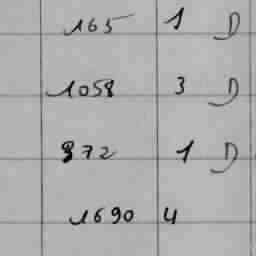 165 1 D
1058 3 D
372 1 D
1690 4